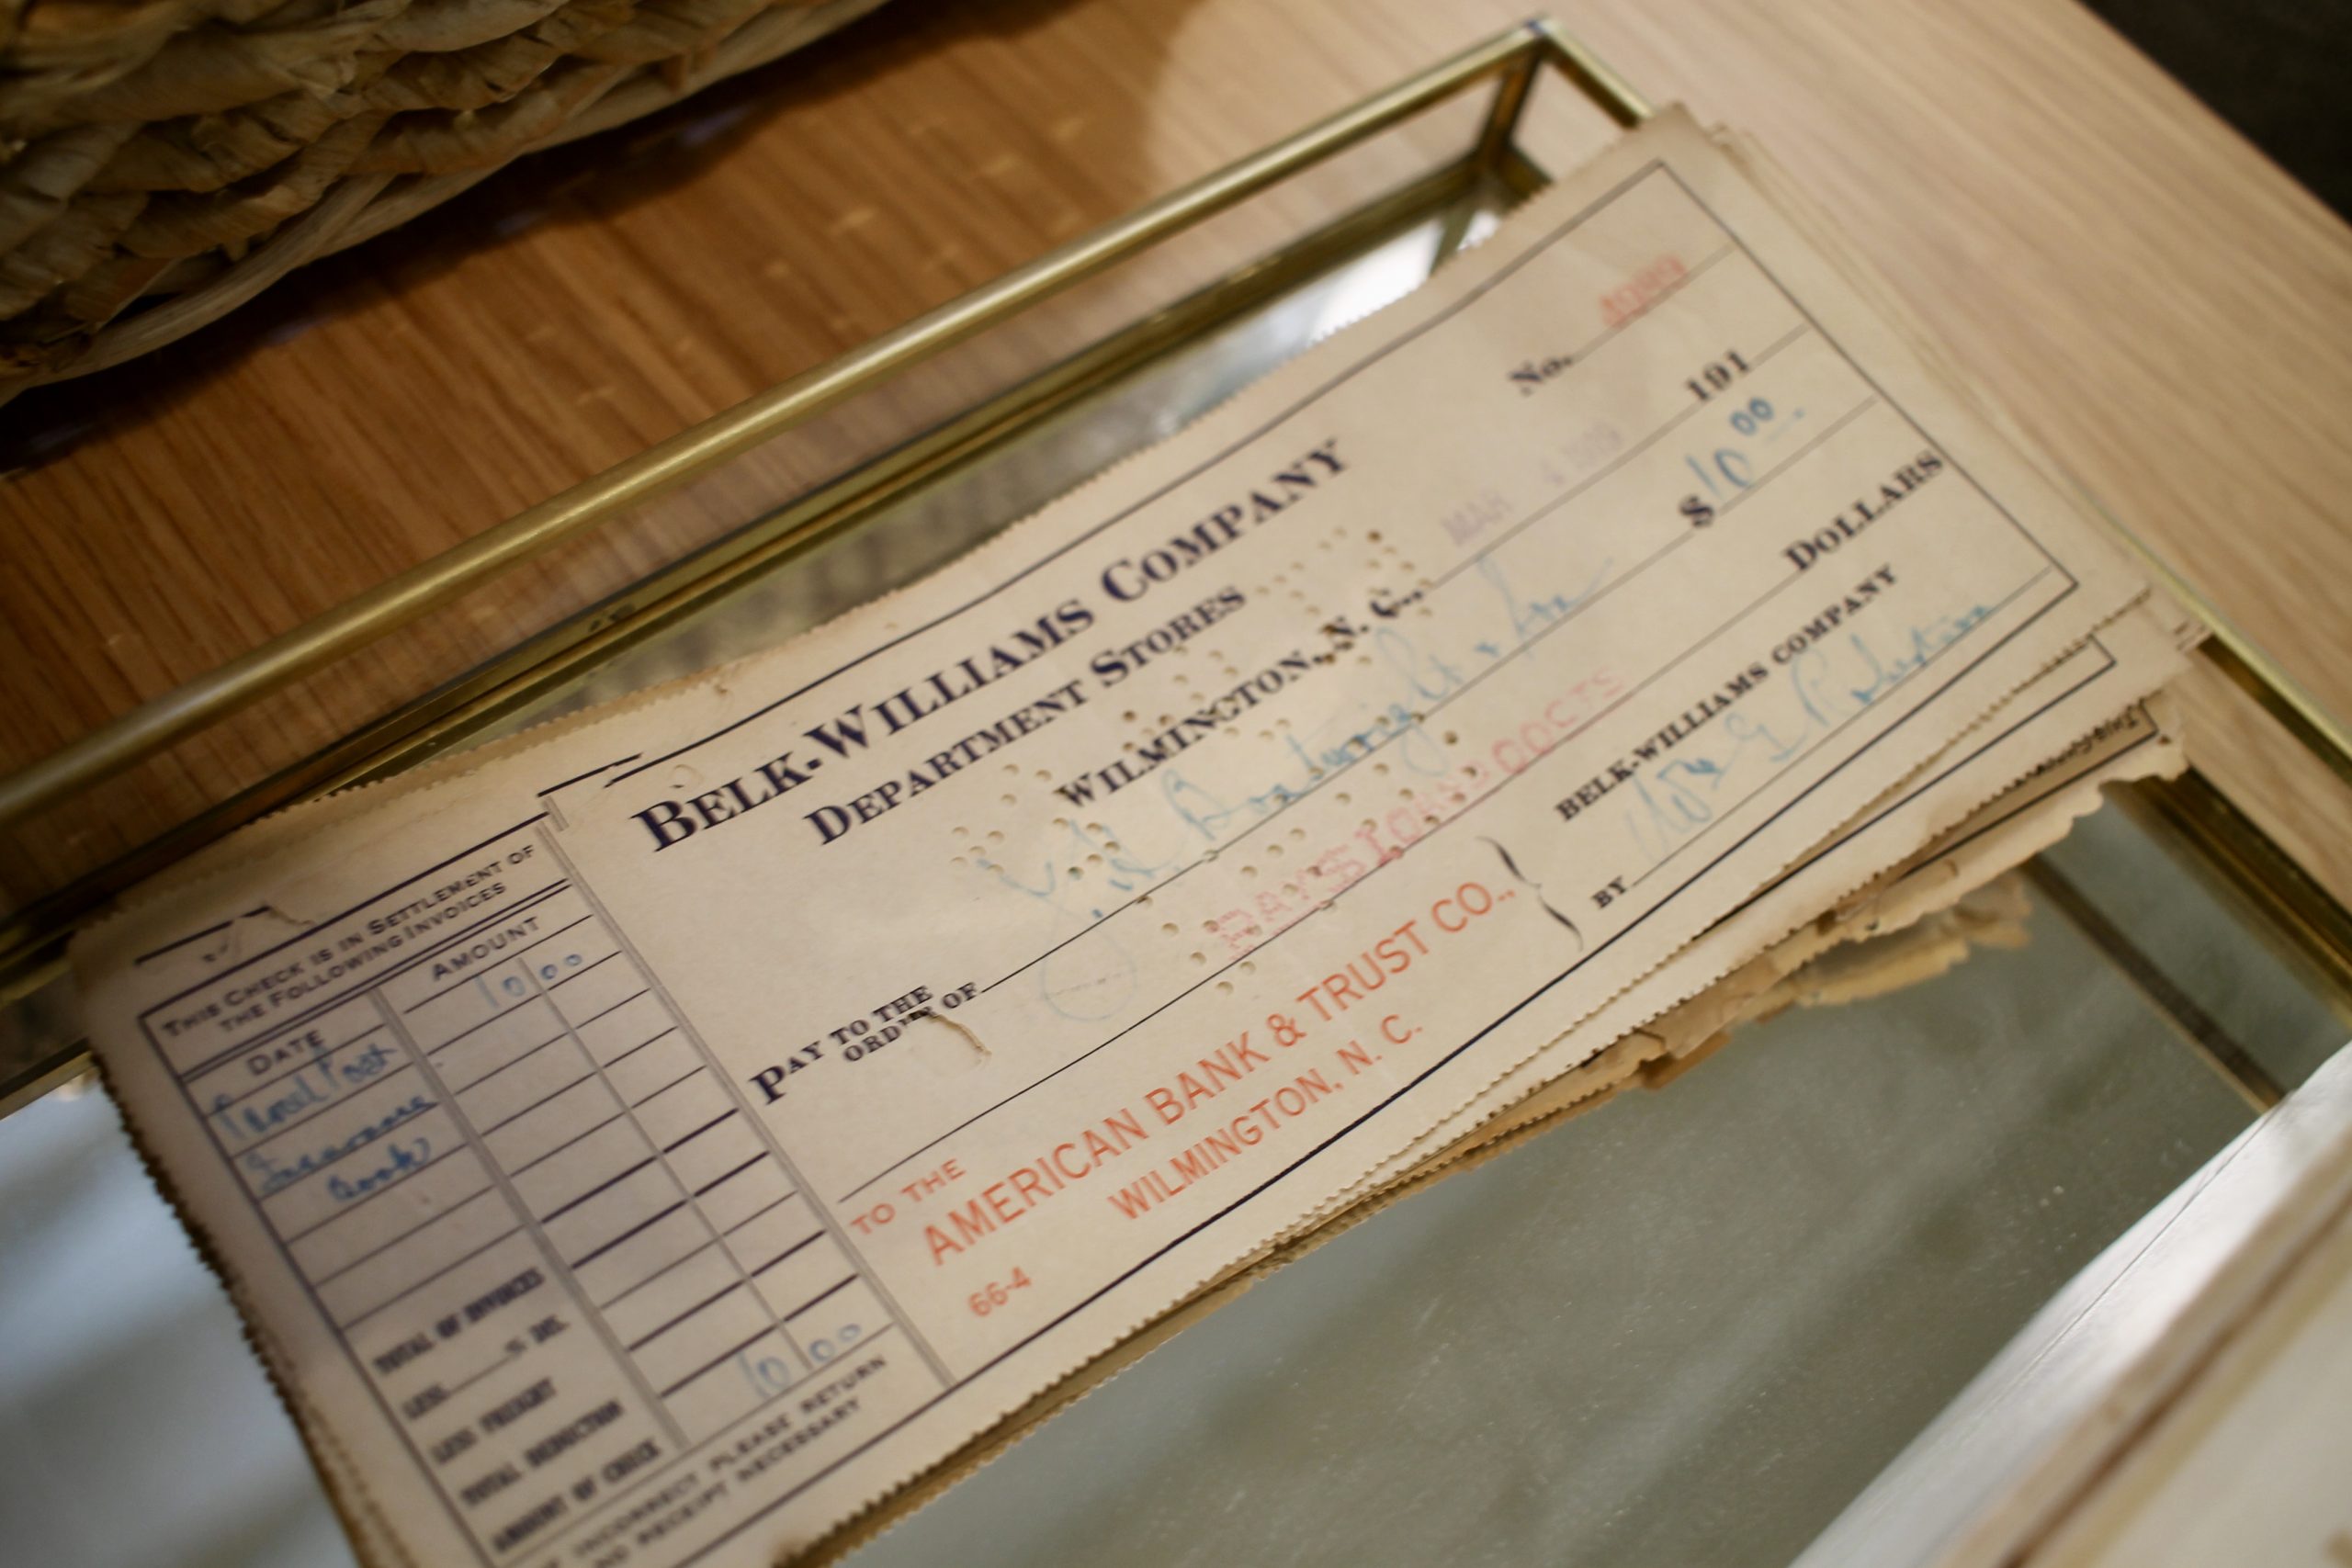 THIS CHECK IS IN SETTLEMENT OF
THE FOLLOWING INVOICES
DATE AMOUNT
Parcel Post 10 00
Insurance
Book
TOTAL OF INVOICES
LESS % DIS.
LESS FREIGHT
TOTAL DEDUCTION
AMOUNT OF CHECK 10 00
INCORRECT PLEASE RETURN
NO RECEIPT NECESSARY
No.
BELK-WILLIAMS COMPANY
DEPARTMENT STORES
WILMINGTON, N. C., MAR 4 191
PAY TO THE
ORDER OF Boatwright & Son $10 00
DOLLARS
TO THE
AMERICAN BANK & TRUST CO.,
WILMINGTON, N. C.
66-4
BELK-WILLIAMS COMPANY
BY